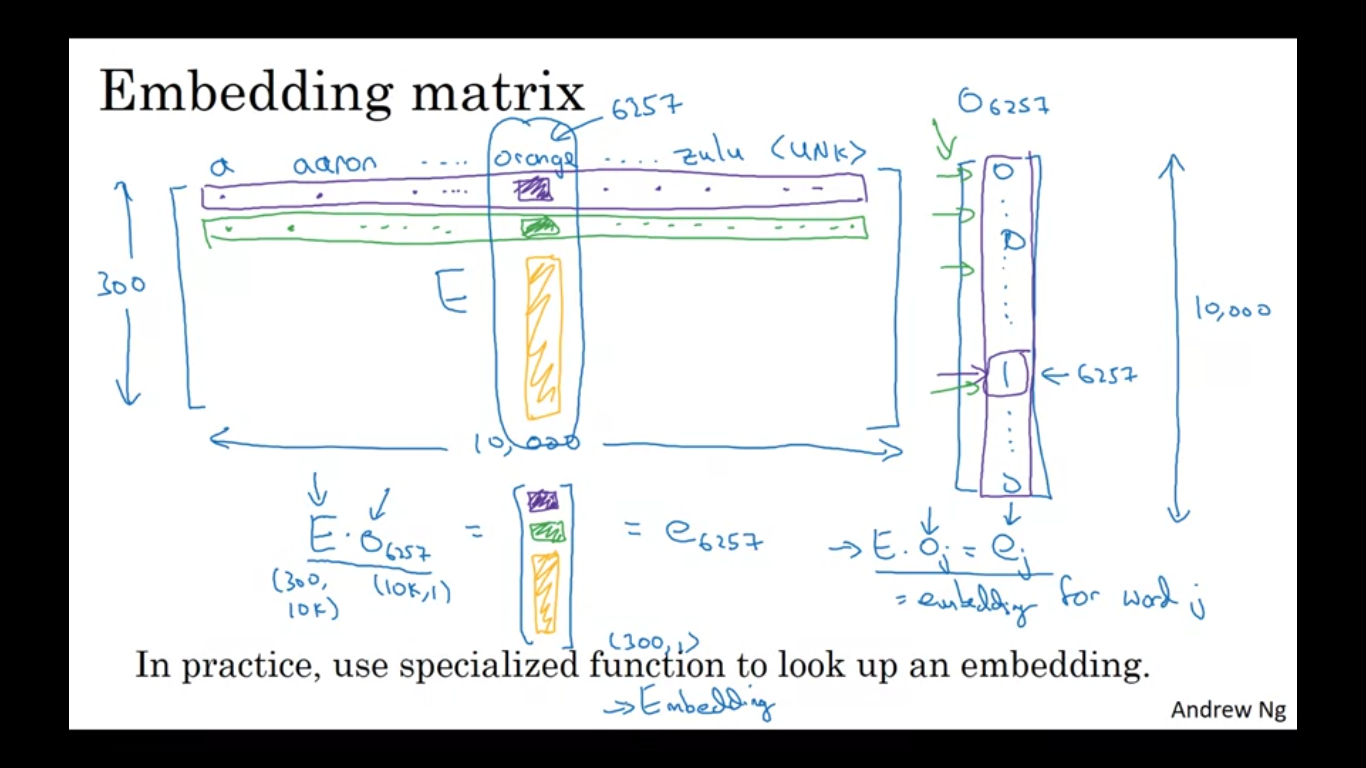 Embedding matrix
6257
O6257
a aaron ..... orange ..... zulu <UNK>
0
0
300
E
10,000
1 ← 6257
10,000
0
E · o6257 = = e6257
(300, 10K) (10K,1)
→ E · oj = ej
= embedding for word j
(300,1)
In practice, use specialized function to look up an embedding.
→ Embedding
Andrew Ng